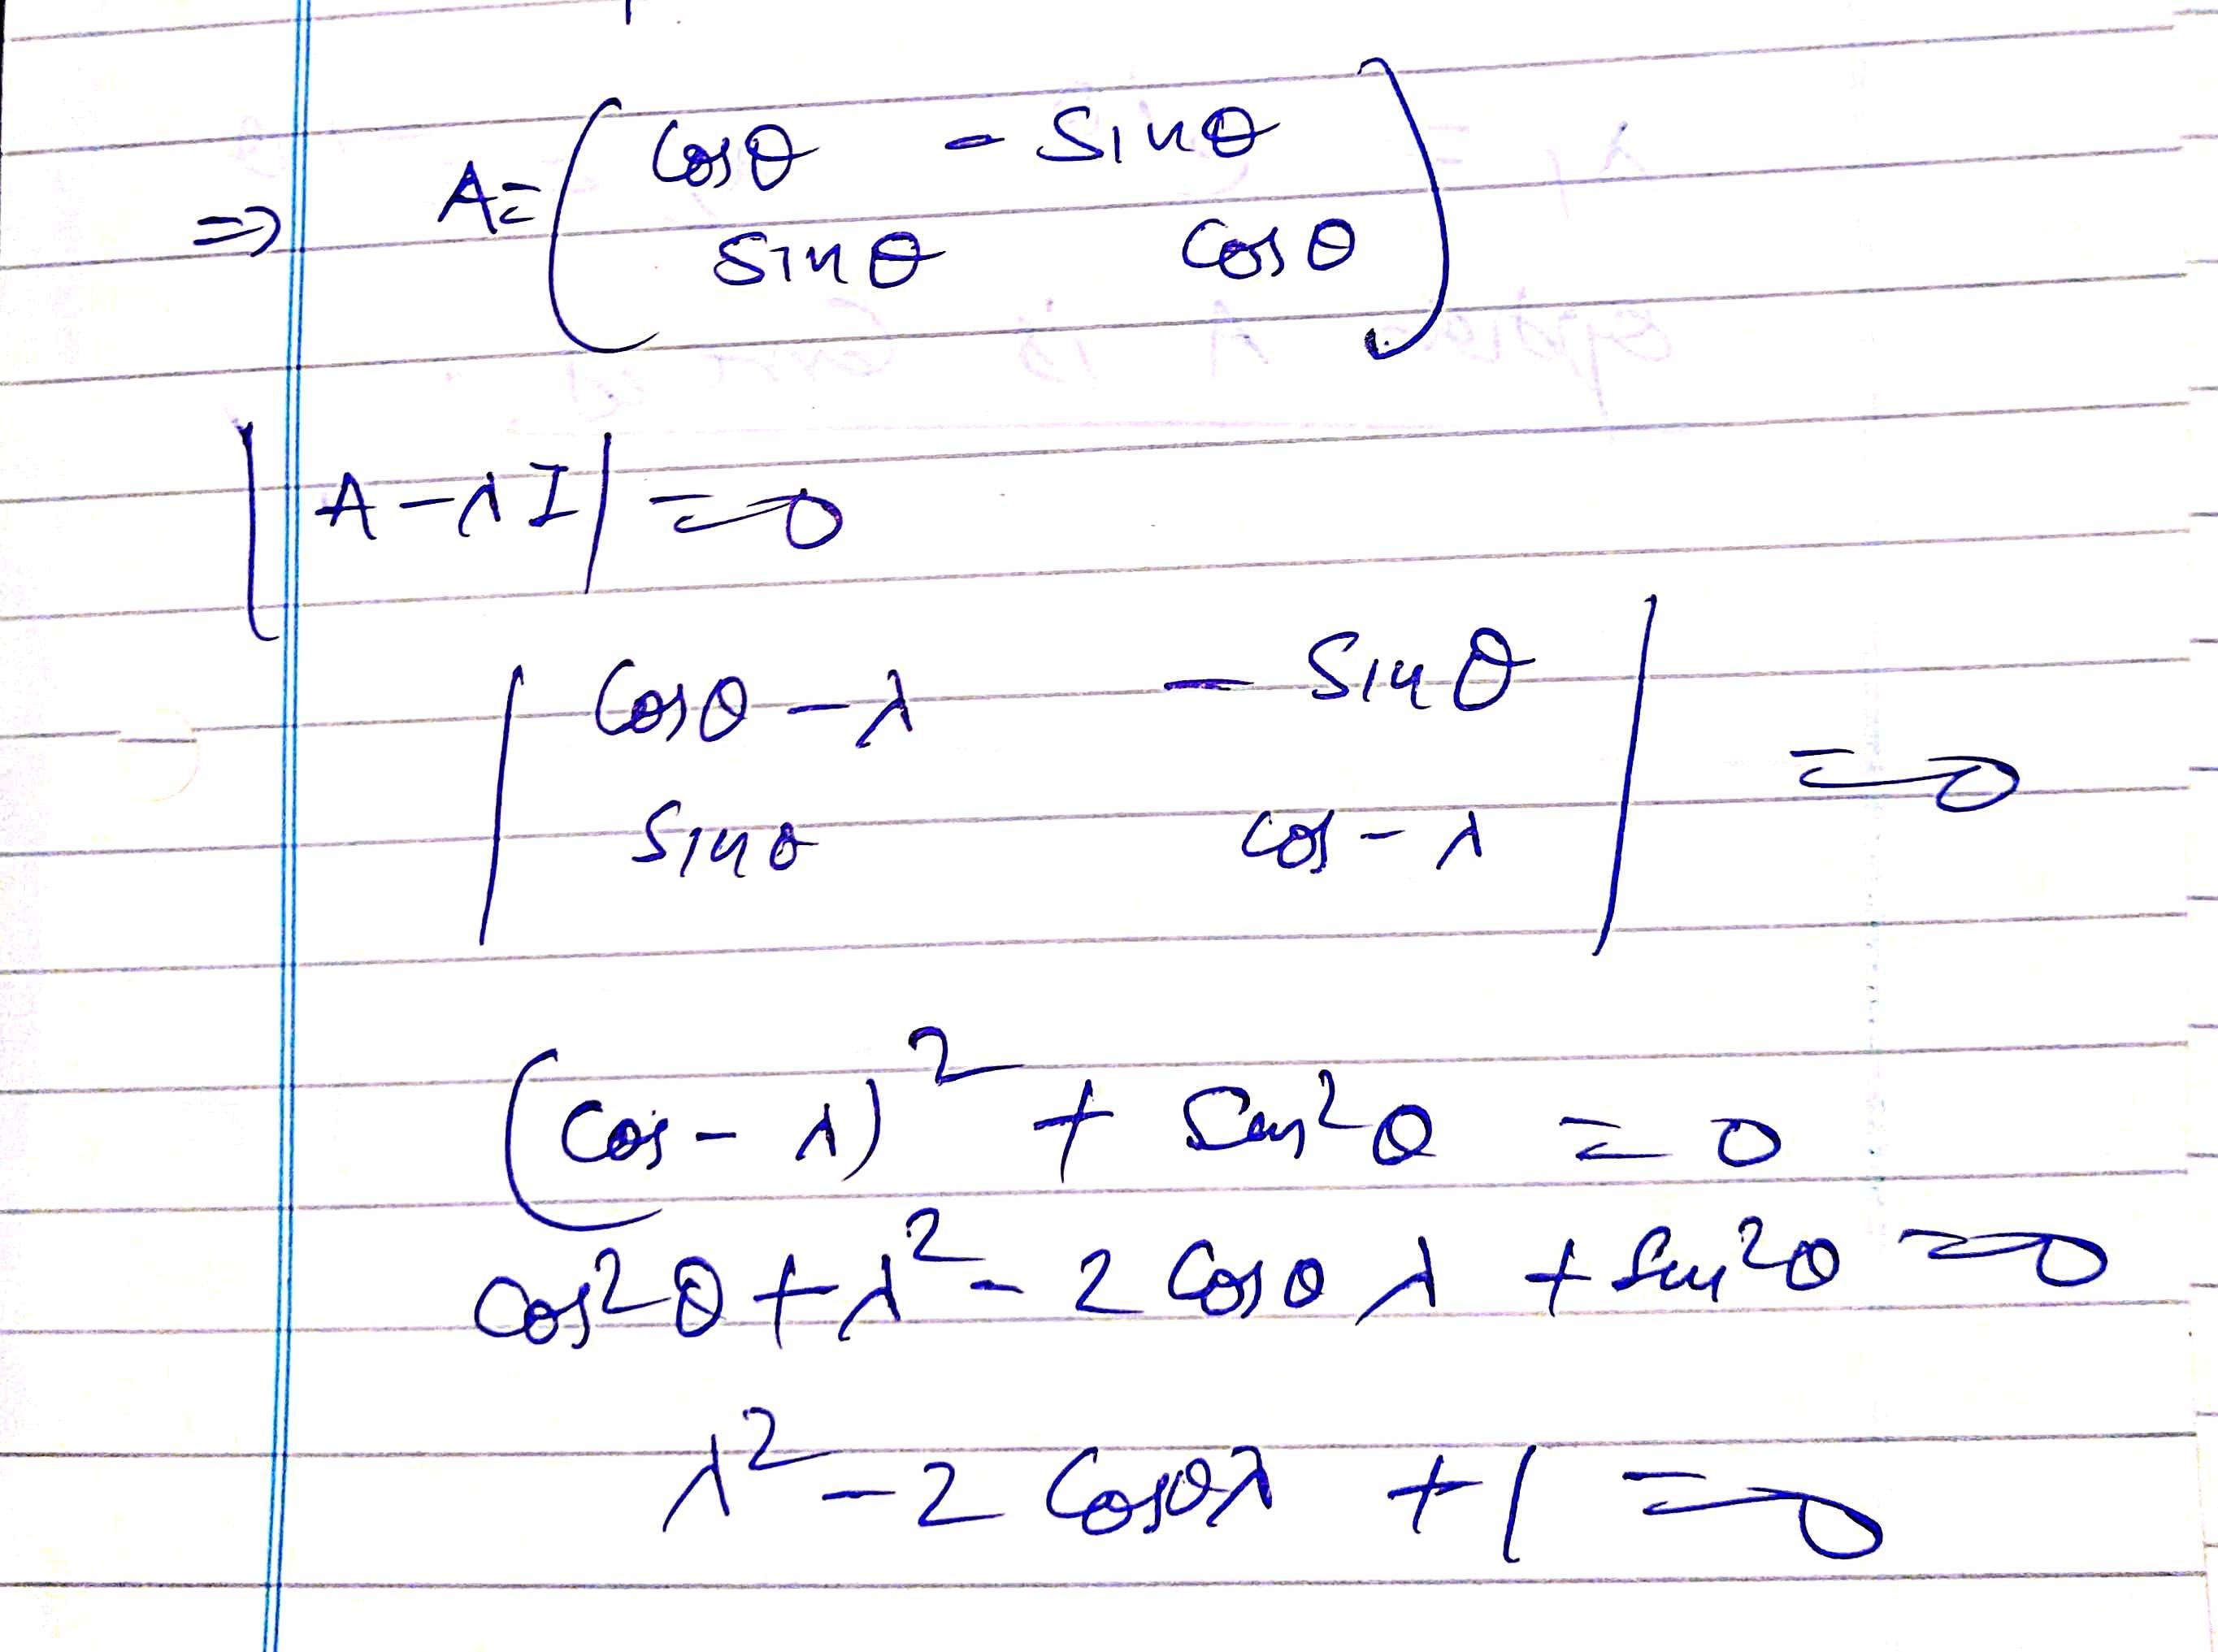 ⇒ A = ( cosθ  - sinθ
sinθ  cosθ )
| A - λI | = 0
| cosθ - λ  - sinθ |
| sinθ  cos - λ | = 0
(cos - λ)² + sin²θ = 0
cos²θ + λ² - 2 cosθ λ + sin²θ = 0
λ² - 2 cosθλ + 1 = 0